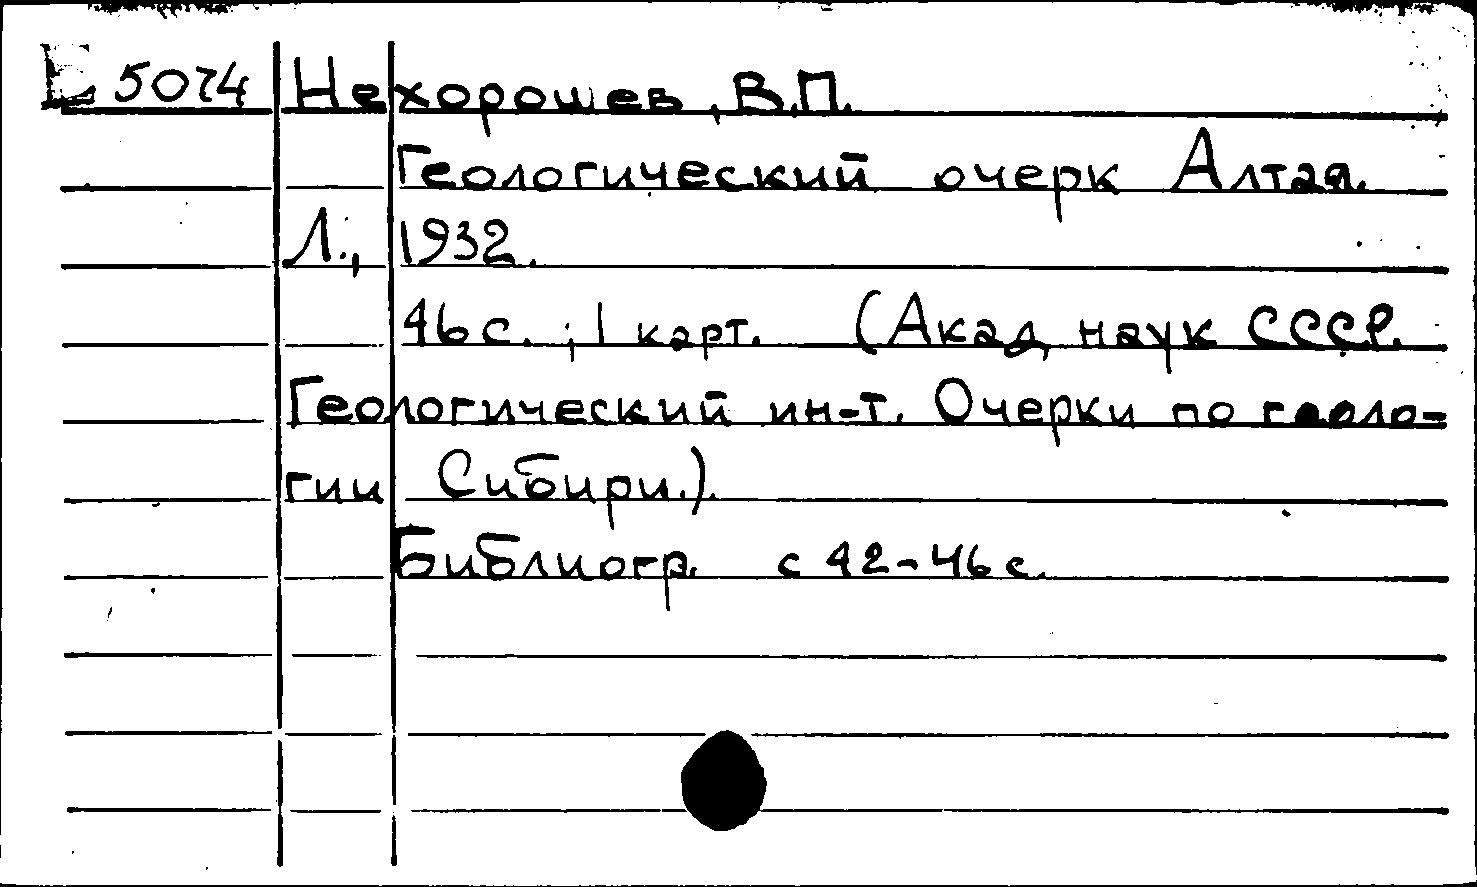 5074 Нехорошев, В.П.
Геологический очерк Алтая.
Л., 1932.
46 с. ; 1 карт. (Акад. наук СССР.
Геологический ин-т. Очерки по геоло-
гии Сибири.).
Библиогр. с 42-46 с.